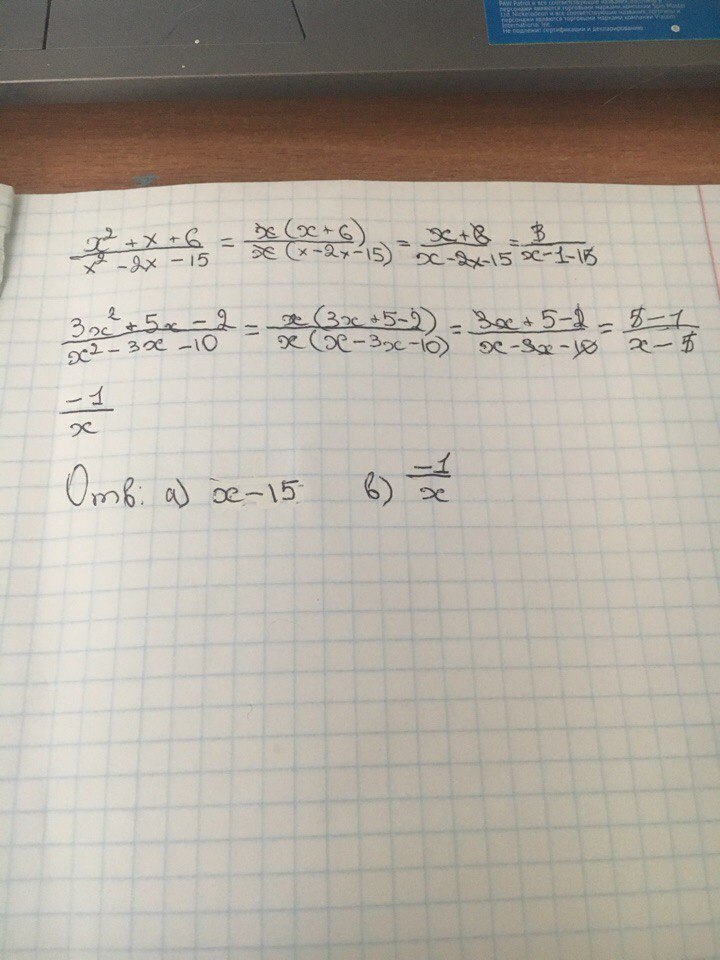 PAW Patrol и все соответствующие названия,
персонажи являются торговыми марками компании Spin Master
Ltd. Nickelodeon и все соответствующие названия, логотипы и
персонажи являются торговыми марками компании Viacom
International Inc.
Не подлежит сертификации и декларированию.
x² + x + 6 / x² - 2x - 15 = x(x + 6) / x(x - 2x - 15) = x + 6 / x - 2x - 15 = 3 / x - 1 - 15
3x² + 5x - 2 / x² - 3x - 10 = x(3x + 5 - 2) / x(x - 3x - 10) = 3x + 5 - 2 / x - 3x - 10 = 5 - 1 / x - 5
-1 / x
Отв: а) x - 15 в) -1 / x